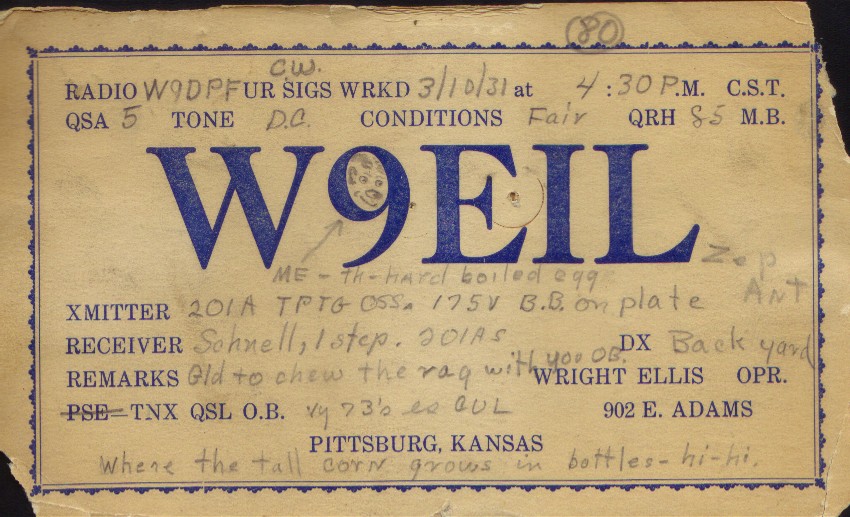 80
C.W.
RADIO W9DPF UR SIGS WRKD 3/10/31 at 4:30 P.M. C.S.T.
QSA 5 TONE D.C. CONDITIONS Fair QRH 85 M.B.
W9EIL
ME - th-hard boiled egg
Zep
Ant
XMITTER 201A TPTG OSS. 175V B.B. on plate
RECEIVER Schnell, 1 step. 201As DX Back yard
REMARKS Gld to chew the rag with you OB. WRIGHT ELLIS OPR.
PSE-TNX QSL O.B. vy 73's es CUL 902 E. ADAMS
PITTSBURG, KANSAS
Where the tall corn grows in bottles - hi-hi.